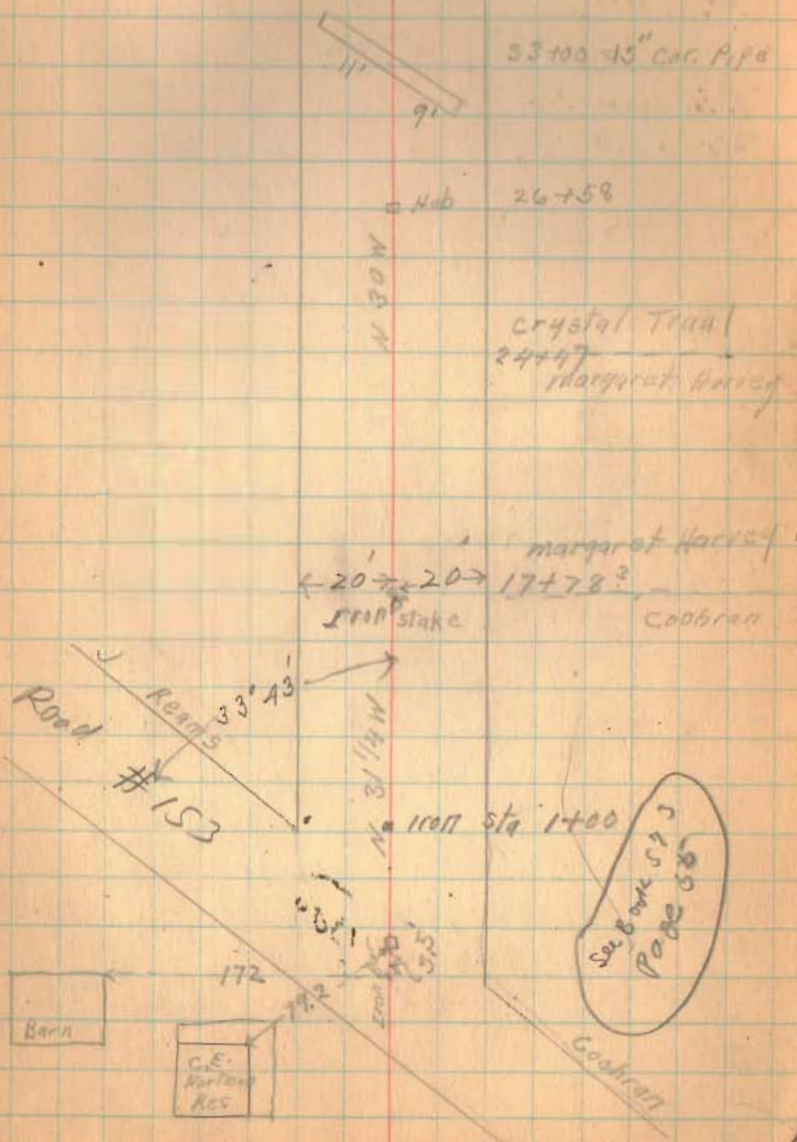 33+00 15" cor. Pipe
11'
9'
Hub 26+58
N 30 W
Crystal Traul
24+47
Margaret Harvey
margaret Harvey
20' 20' 17+78
Iron stake Cochran
33' 43'
Reams
Road
#153
N 31 1/4 W
Iron sta 1+00
See Book 573
Page
35'
172
79.2
Barn
C.E.
Res
Cochran